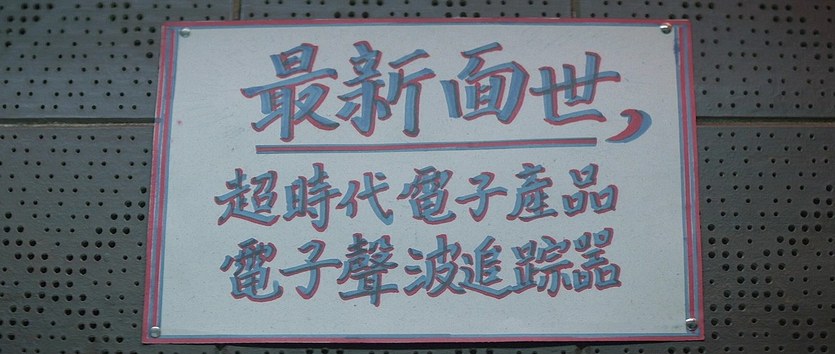 最新面世，
超時代電子產品
電子聲波追踪器